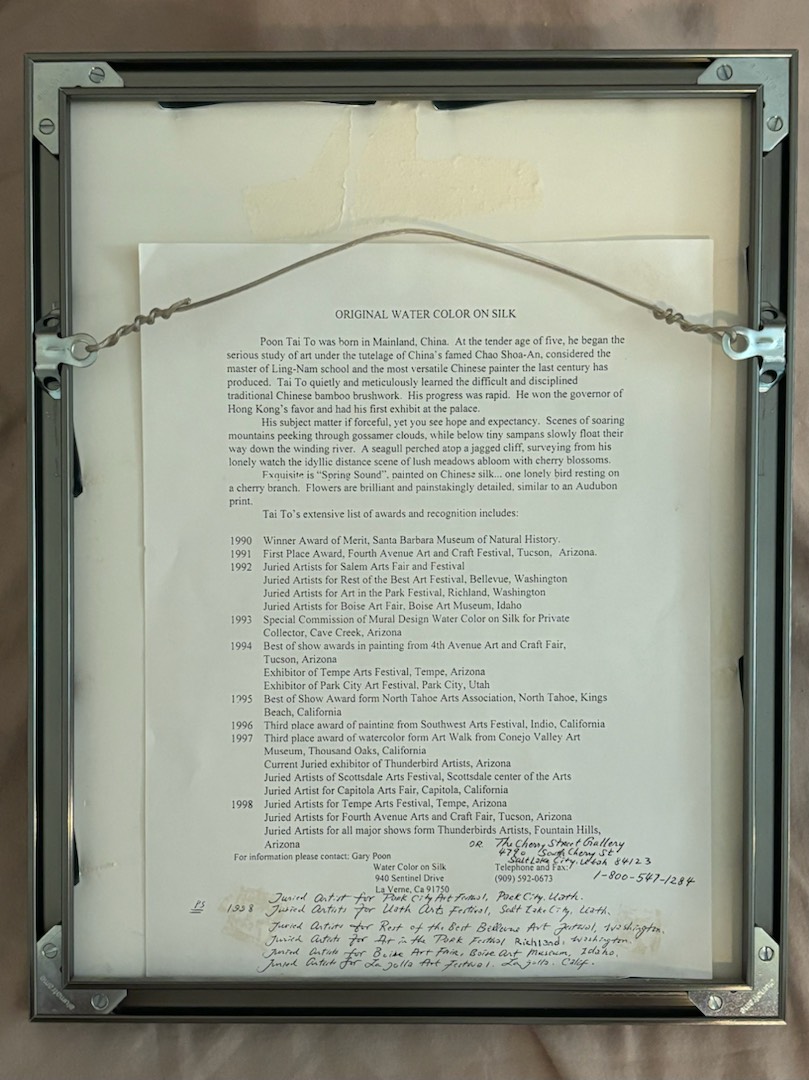 ORIGINAL WATER COLOR ON SILK
Poon Tai To was born in Mainland, China. At the tender age of five, he began the
serious study of art under the tutelage of China's famed Chao Shoa-An, considered the
master of Ling-Nam school and the most versatile Chinese painter the last century has
produced. Tai To quietly and meticulously learned the difficult and disciplined
traditional Chinese bamboo brushwork. His progress was rapid. He won the governor of
Hong Kong's favor and had his first exhibit at the palace.
His subject matter if forceful, yet you see hope and expectancy. Scenes of soaring
mountains peeking through gossamer clouds, while below tiny sampans slowly float their
way down the winding river. A seagull perched atop a jagged cliff, surveying from his
lonely watch the idyllic distance scene of lush meadows abloom with cherry blossoms.
Exquisite is "Spring Sound", painted on Chinese silk... one lonely bird resting on
a cherry branch. Flowers are brilliant and painstakingly detailed, similar to an Audubon
print.
Tai To's extensive list of awards and recognition includes:
1990 Winner Award of Merit, Santa Barbara Museum of Natural History.
1991 First Place Award, Fourth Avenue Art and Craft Festival, Tucson, Arizona.
1992 Juried Artists for Salem Arts Fair and Festival
Juried Artists for Rest of the Best Art Festival, Bellevue, Washington
Juried Artists for Art in the Park Festival, Richland, Washington
Juried Artists for Boise Art Fair, Boise Art Museum, Idaho
1993 Special Commission of Mural Design Water Color on Silk for Private
Collector, Cave Creek, Arizona
1994 Best of show awards in painting from 4th Avenue Art and Craft Fair,
Tucson, Arizona
Exhibitor of Tempe Arts Festival, Tempe, Arizona
Exhibitor of Park City Art Festival, Park City, Utah
1995 Best of Show Award form North Tahoe Arts Association, North Tahoe, Kings
Beach, California
1996 Third place award of painting from Southwest Arts Festival, Indio, California
1997 Third place award of watercolor form Art Walk from Conejo Valley Art
Museum, Thousand Oaks, California
Current Juried exhibitor of Thunderbird Artists, Arizona
Juried Artists of Scottsdale Arts Festival, Scottsdale center of the Arts
Juried Artist for Capitola Arts Fair, Capitola, California
1998 Juried Artists for Tempe Arts Festival, Tempe, Arizona
Juried Artists for Fourth Avenue Arts and Craft Fair, Tucson, Arizona
Juried Artists for all major shows form Thunderbirds Artists, Fountain Hills,
Arizona
OR The Cherry Street Gallery
4790 South Cherry St
Salt Lake City, Utah 84123
1-800-547-1284
For information please contact: Gary Poon
Water Color on Silk
940 Sentinel Drive
La Verne, Ca 91750
Telephone and Fax:
(909) 592-0673
Juried Artist for Park City Art Festival, Park City, Utah.
PS 1998 Juried Artists for Utah Arts Festival, Salt Lake City, Utah.
Juried Artists for Rest of the Best Bellevue Art Festival, Washington.
Juried Artists for Art in the Park Festival Richland, Washington.
Juried Artists for Boise Art Fair, Boise Art Museum, Idaho.
Juried Artists for La Jolla Art Festival. La Jolla. Calif.